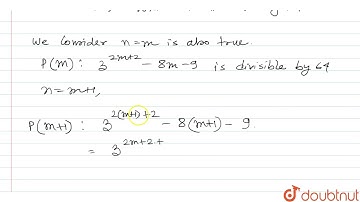 We Consider n=m is also true.
P(m) : 3^{2m+2} - 8m - 9 is divisible by 64
n = m+1,
P(m+1) : 3^{2(m+1)+2} - 8(m+1) - 9.
= 3^{2m+2+
doubtnut